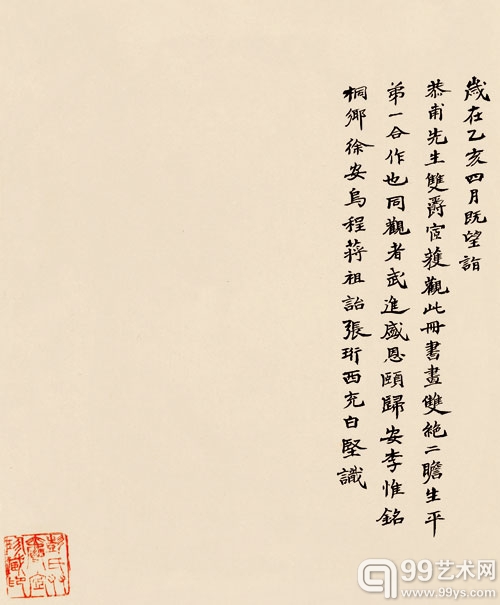 歲在乙亥四月既望詣
恭甫先生雙爵宧獲觀此冊書畫雙絶二瞻生平
弟一合作也同觀者武進盛恩頤歸安李惟銘
桐鄉徐安烏程蔣祖詒張珩西充白堅識
99艺术网
www.99ys.com